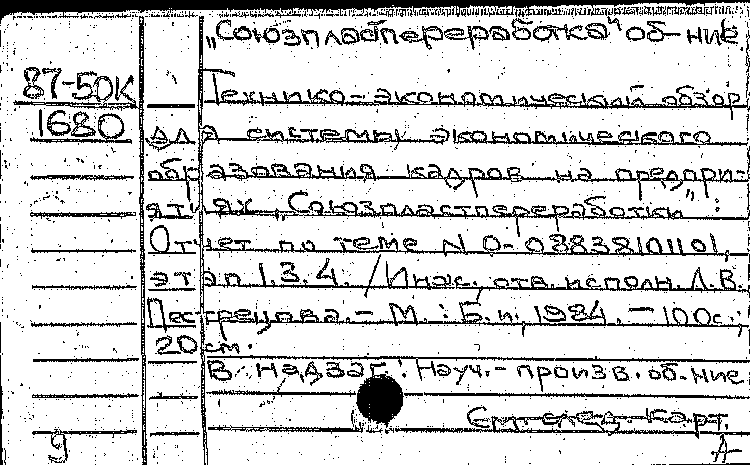 „Союзпластпереработка" об-ние.
87-50К
1680
Технико-экономический обзор
для системы экономического
образования кадров на предпри-
ятиях „Союзпластпереработки":
Отчет по теме N 0-083838101101,
этап 1.3.4. / отв. исполн. Л.В.
Пестрецова. - М.: Б.и., 1984. - 100с.;
20см.
В надзаг.: Науч.-произв. об-ние
См. след. карт.
g
А-